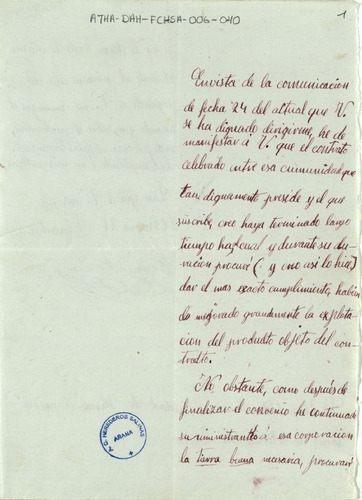 ATHA-DAH-FCHSA-006-040
1
Envista de la comunicacion
de fecha 24 del actual que V.
se ha dignado dirigirme, he de
manifestar á V. que el contrato
celebrado entre esa comunidad que
tan dignamente preside y el que
suscribe, creo haya terminado largo
tiempo ha, el cual y durante su du-
racion procuré (y creo asi lo hice)
dar el mas exacto cumplimiento, habien
do mejorado grandemente la explota
cion del producto objeto del con-
trato.
No obstante, como después de
finalizar el convenio he continuado
suministrando á esa corporacion
la tierra buena necesaria, procuraré
A. G. HEREDEROS SALINAS
AÑANA